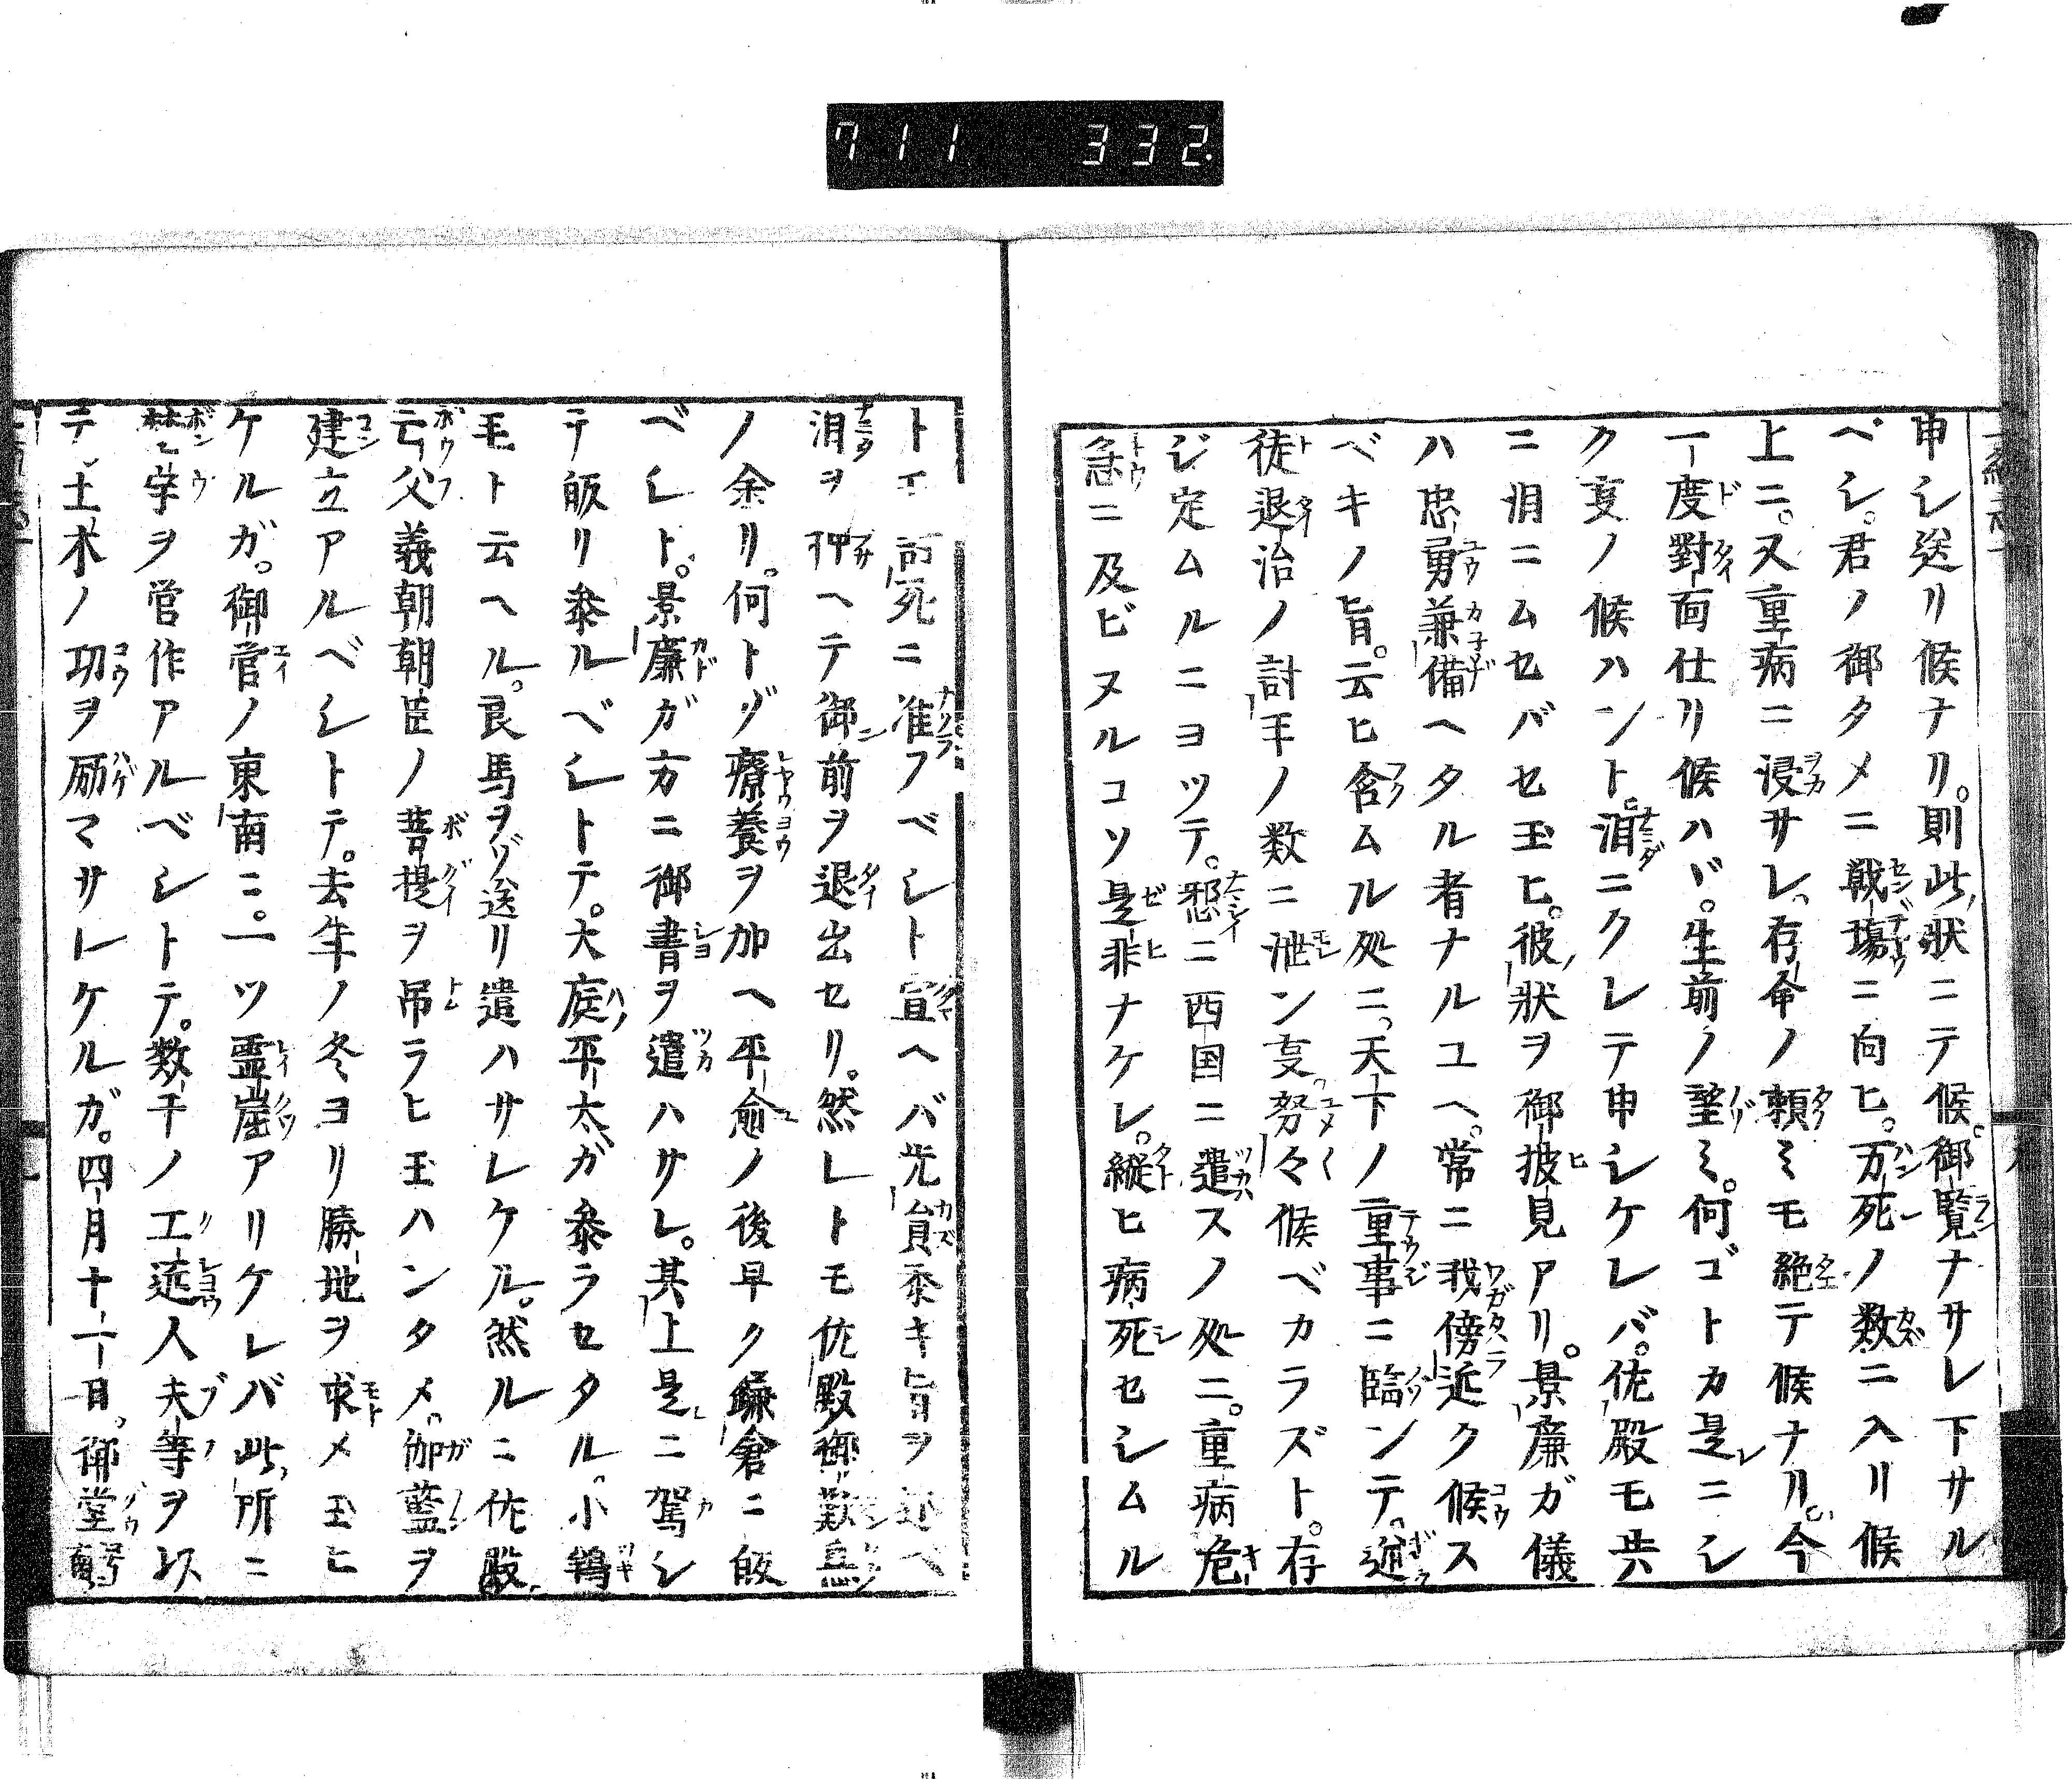 711 332.
申シ送リ候ナリ。則此状ニテ候。御覧ナサレ下サル
ベシ。君ノ御タメニ戦場ニ向ヒ。万死ノ数ニ入リ候
上ニ。又重病ニ浸サレ。存命ノ頼ミモ絶テ候ナリ。今
一度對面仕リ候ハヾ。生前ノ望ミ。何ゴトカ是ニシ
ク㕝ノ候ハント。泪ニクレテ申シケレバ。佐殿モ共
ニ泪ニムセバセ玉ヒ。彼状ヲ御披見アリ。景廉ガ儀
ハ忠勇兼備ヘタル者ナルユヘ。常ニ我傍近ク候ス
ベキノ旨。云ヒ含ムル処ニ。天下ノ重事ニ臨ンテ。逆
徒退治ノ討手ノ数ニ泄ン㕝。努々候ベカラズト。存
ジ定ムルニヨツテ。憖ニ西国ニ遣スノ処ニ。重病危
急ニ及ビヌルコソ是非ナケレ。縦ヒ病死セシムル
トモ 死ニ准フベシト宣ヘバ光員忝キ旨ヲ述ベ
泪ヲ押ヘテ御前ヲ退出セリ。然レトモ佐殿御歎息
ノ余リ。何トゾ療養ヲ加ヘ平愈ノ後早ク鎌倉ニ皈
ベシト。景廉ガ方ニ御書ヲ遣ハサレ。其上是ニ駕シ
テ皈リ参ルベシトテ。大庭平太ガ参ラセタル。小鴾
毛ト云ヘル。良馬ヲゾ送リ遣ハサレケル。然ルニ佐殿
亡父義朝朝臣ノ菩提ヲ吊ラヒ玉ハンタメ。伽藍ヲ
建立アルベシトテ。去年ノ冬ヨリ勝地ヲ求メ玉ヒ
ケルガ。御営ノ東南ニ。一ツ霊崫アリケレバ此所ニ
梵宇ヲ営作アルベシトテ。数千ノ工匠人夫等ヲ以
テ土木ノ功ヲ励マサレケルガ。四月十一日。御堂